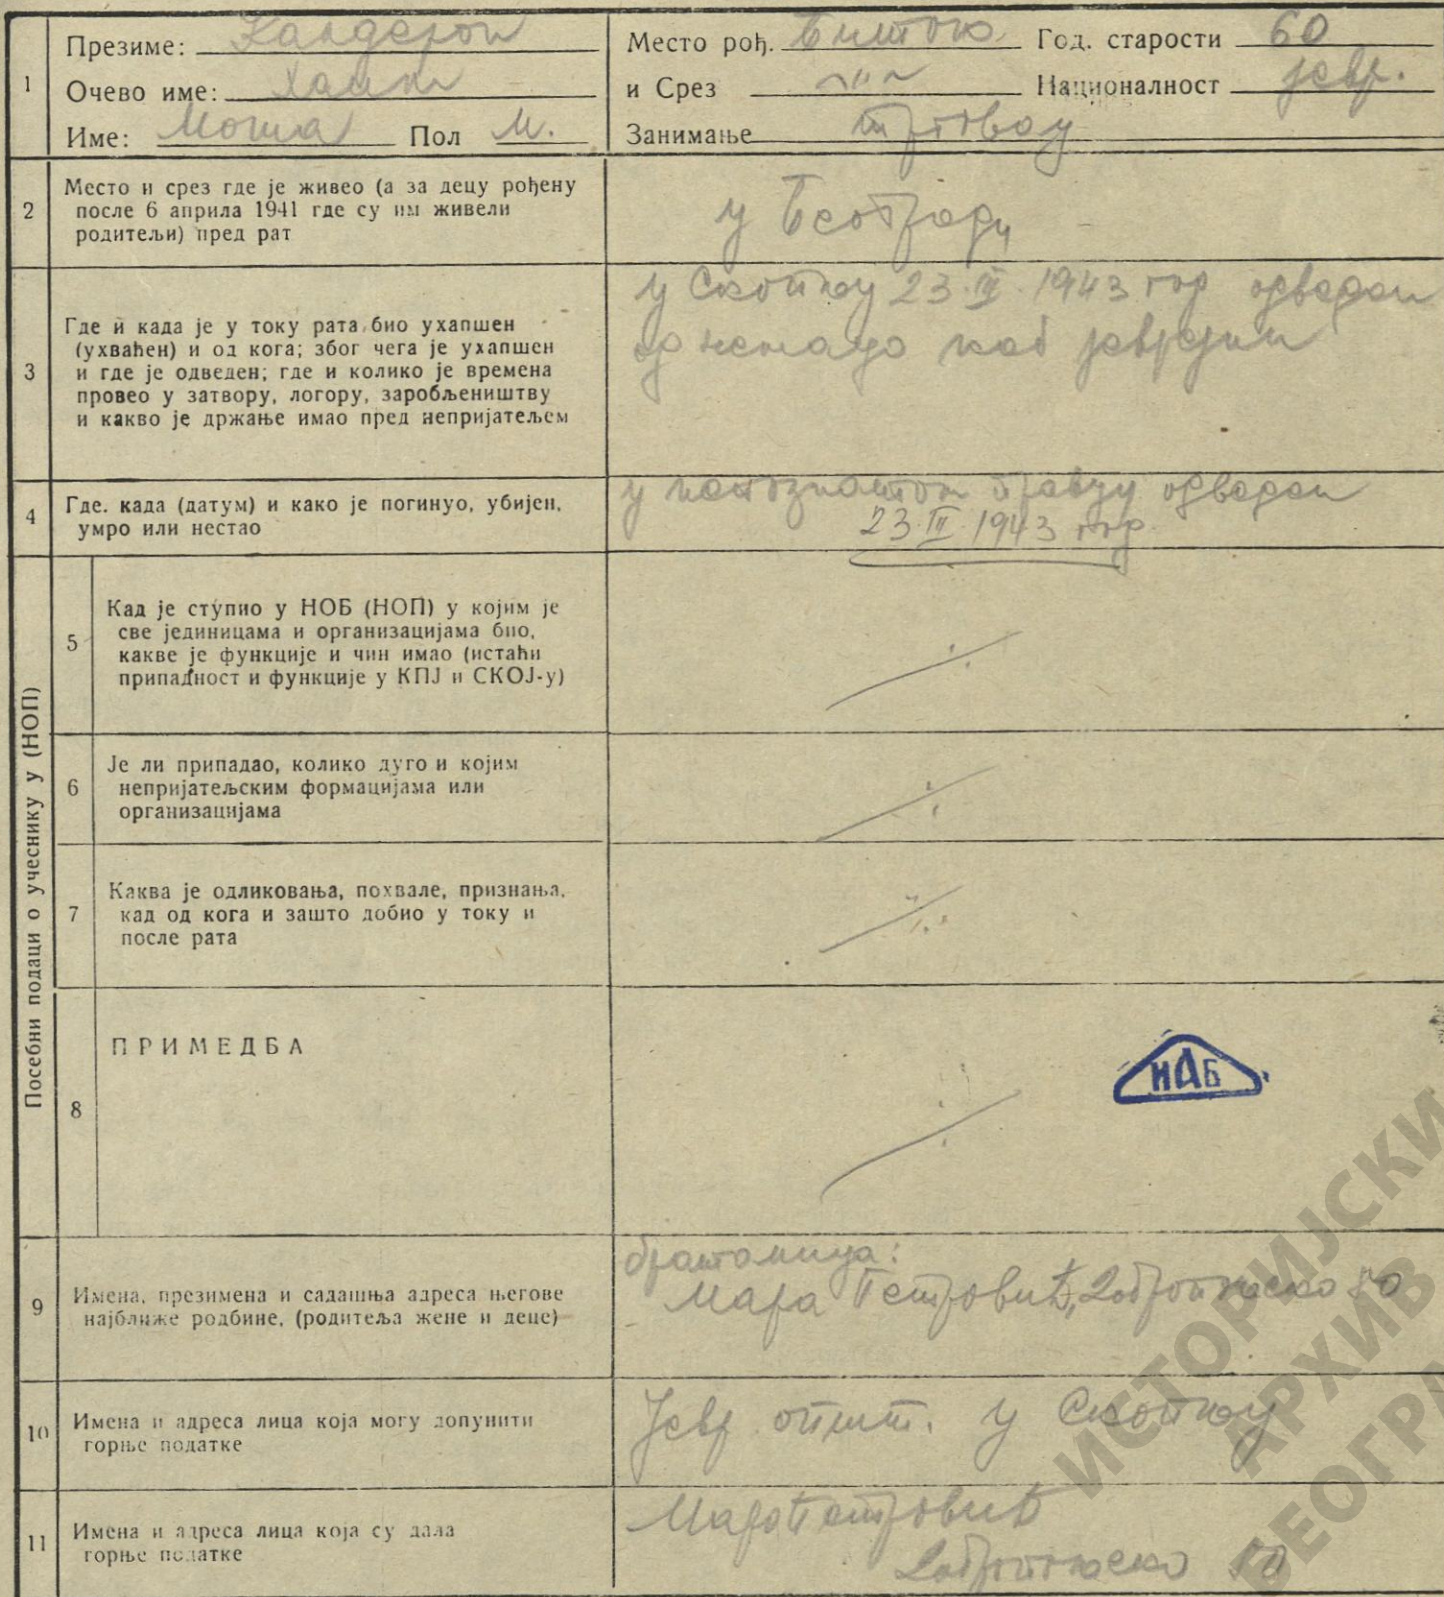 1
Презиме: Калдерон
Очево име: Хаим
Име: Моша Пол М.
Место рођ. Битољ Год. старости 60
и Срез -"- Националност јевр.
Занимање трговац
2
Место и срез где је живео (а за децу рођену
после 6 априла 1941 где су им живели
родитељи) пред рат
у Београду
3
Где и када је у току рата био ухапшен
(ухваћен) и од кога; због чега је ухапшен
и где је одведен; где и колико је времена
провео у затвору, логору, заробљеништву
и какво је држање имао пред непријатељем
у Скопљу 23. III. 1943 год одведен
од немаца као јеврејин
4
Где. када (датум) и како је погинуо, убијен,
умро или нестао
у непознатом правцу одведен
23. III. 1943 год.
Посебни подаци о учеснику у (НОП)
5
Кад је ступио у НОБ (НОП) у којим је
све јединицама и организацијама био,
какве је функције и чин имао (истаћи
припадност и функције у КПЈ и СКОЈ-у)
6
Је ли припадао, колико дуго и којим
непријатељским формацијама или
организацијама
7
Каква је одликовања, похвале, признања,
кад од кога и зашто добио у току и
после рата
8
ПРИМЕДБА
ИАБ
9
Имена, презимена и садашња адреса његове
најближе родбине, (родитеља жене и деце)
братаница:
Мара Петровић, 50
10
Имена и адреса лица која могу допунити
горње податке
Јевр општ. у Скопљу
11
Имена и адреса лица која су дала
горње податке
Мара Петровић
50
ИСТОРИЈСКИ
АРХИВ
БЕОГРА